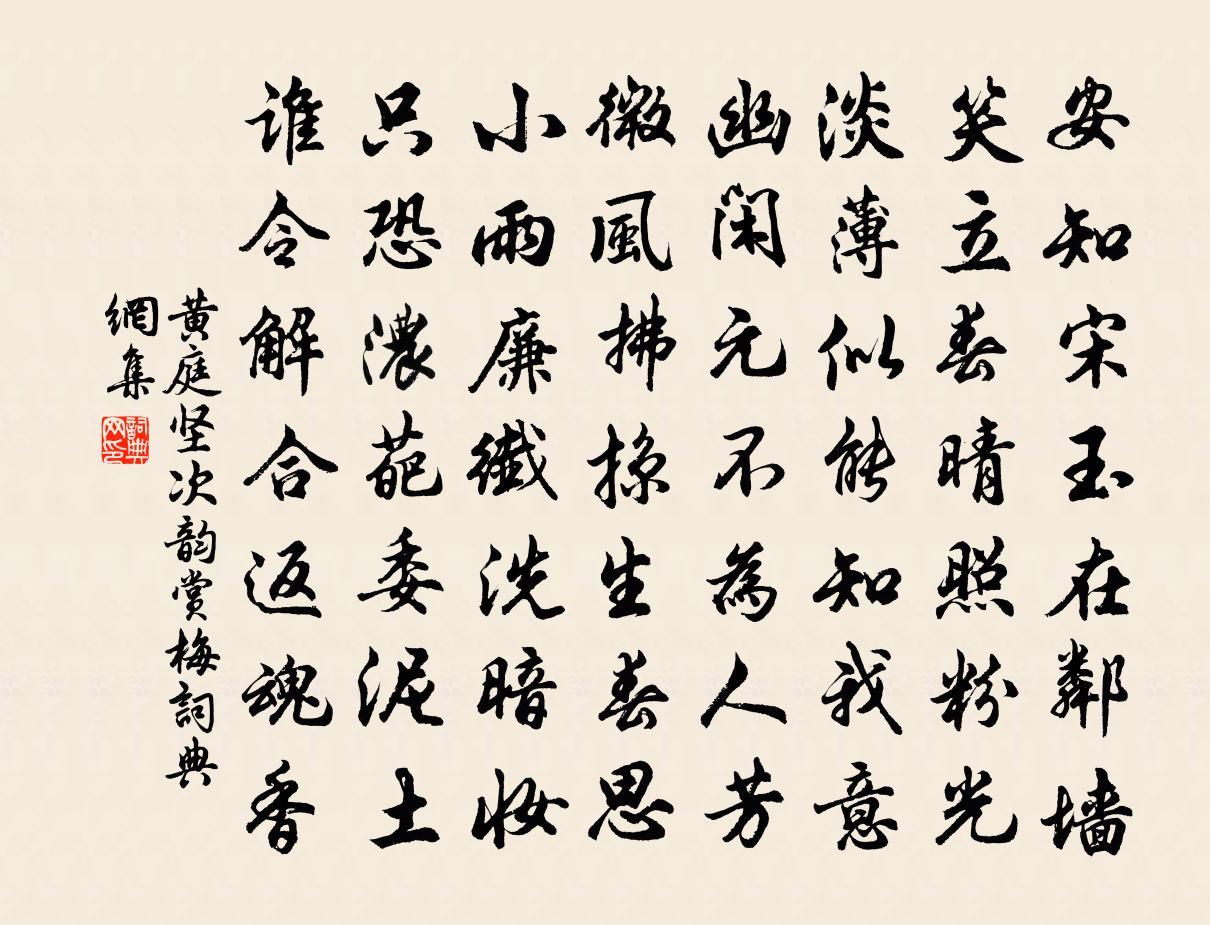 安知宋玉在鄰墙
笑立春晴照粉光
淡薄似能知我意
幽閑元不為人芳
微風拂掠生春思
小雨廉纖洗暗妝
只恐濃葩委泥土
誰令解合返魂香
黄庭坚次韵賞梅詞典
網集
詞典
网印